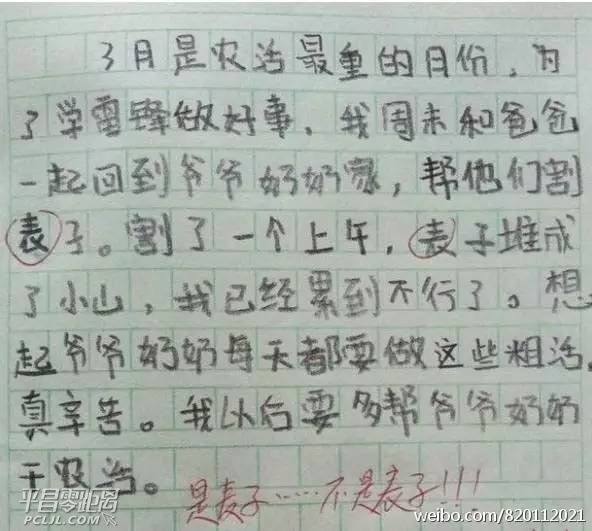 3月是农活最重的月份,为
了学雷锋做好事,我周末和爸爸
一起回到爷爷奶奶家,帮他们割
表子。割了一个上午,表子堆成
了小山,我已经累到不行了。想
起爷爷奶奶每天都要做这些粗活,
真辛苦。我以后要多帮爷爷奶奶
干农活。
是麦子……不是表子!!!
平昌零距离
PCLJL.COM
weibo.com/820112021